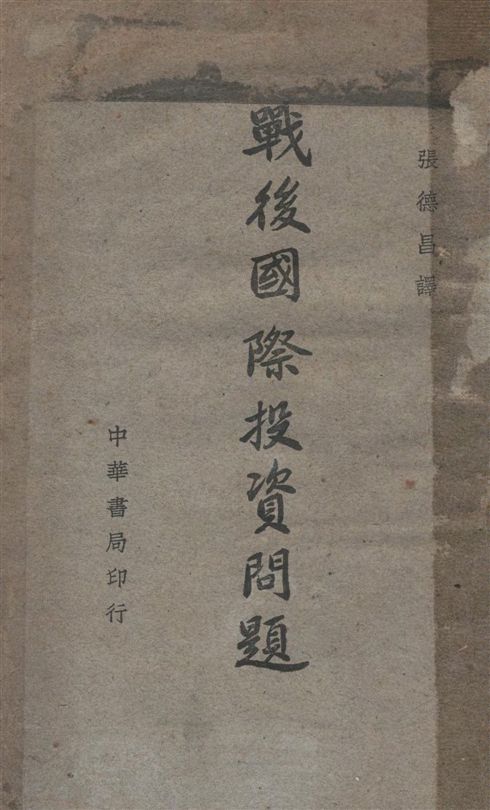 張德昌譯
戰後國際投資問題
中華書局印行